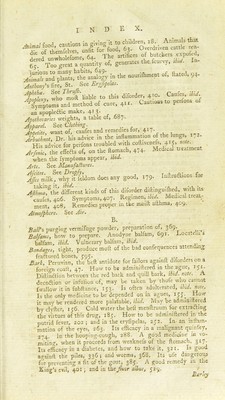 INDEX.
Animal food, cautions in giving it to children, 28. Animals that
die of themselves, unfit for food, 63. Overdriven cattle ren-
dered unwholesome, 64. The artifices of butchers exposed,
65. Too great a quantity of, generates the scurvy, ibid. In-
jurious to many habits, 649.
Animals and plants, the analogy in the nourishment of, stated, 94.
Anthony's fire, St. See Erysipelas.
Aphthæ. See Thrush.
Apoplexy, who most liable to this disorder, 410. Causes, ibid.
Symptoms and method of cure, 411. Cautions to persons of
an apoplectic make, 413.
Apothecaries weights, a table of, 687.
Apparel. See Clothing.
Appetite, want of, causes and remedies for, 417.
Arbuthnot, Dr. his advice in the inflammation of the lungs, 172.
His advice for persons troubled with costiveness, 415, note.
Arsenic, the effects of, on the stomach, 474. Medical treatment
when the symptoms appear, ibid.
Arts. See Manufactures.
Ascites. See Dropsy.
Asses milk, why it seldom does any good, 179. Instructions for
taking it, ibid.
Asthma, the different kinds of this disorder distinguished, with its
causes, 406. Symptoms, 407. Regimen, ibid. Medical treat-
ment, 408. Remedies proper in the moist asthma, 409.
Atmosphere. See Air.
B.
Ball's purging vermifuge powder, preparation of, 369.
Balsams, how to prepare. Anodyne balsam, 691. Locatelli's
balsam, ibid. Vulnerary balsam, ibid.
Bandages, tight, produce most of the bad consequences attending
fractured bones, 595.
Bark, Peruvian, the best antidote for sailors against disorders on a
foreign coast, 47. How to be administered in the ague, 151.
Distinction between the red bark and quill bark, ibid. note. A
decoction or infusion of, may be taken by those who cannot
swallow it in substance, 153. Is often adulterated, ibid. note.
Is the only medicine to be depended on in agues, 155. How
it may be rendered more palatable, ibid. May be administered
by clyster, 156. Cold water the best menstruum for extracting
the virtues of this drug, 185. How to be administered in the
putrid fever, 201; and in the erysipelas, 252. In an inflam-
mation of the eyes, 262. Its efficacy in a malignant quinsey,
274. In the hooping-cough, 288. A good medicine in vo-
miting, when it proceeds from weakness of the stomach, 317.
Its efficacy in a diabetes, and how to take it, 321. Is good
against the piles, 336; and worms, 368. Its use dangerous
for preventing a fit of the gout, 385. A good remedy in the
King's evil, 401; and in the fluor albus, 519.
Barley